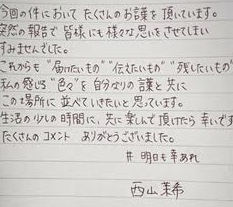 今回の件において たくさんのお言葉を頂いています。
突然の報告で 皆様にも様々な思いをさせてしまい
すみませんでした。
これからも "届けたいもの" "伝えたいもの" "残したいもの"
私の感じる "色々" を自分なりの言葉と共に
この場所に 並べていきたいと思っています。
生活の少しの時間に、共に楽しんで頂けたら 幸いです
たくさんの コメント ありがとうございました。
# 明日も幸あれ
西山茉希